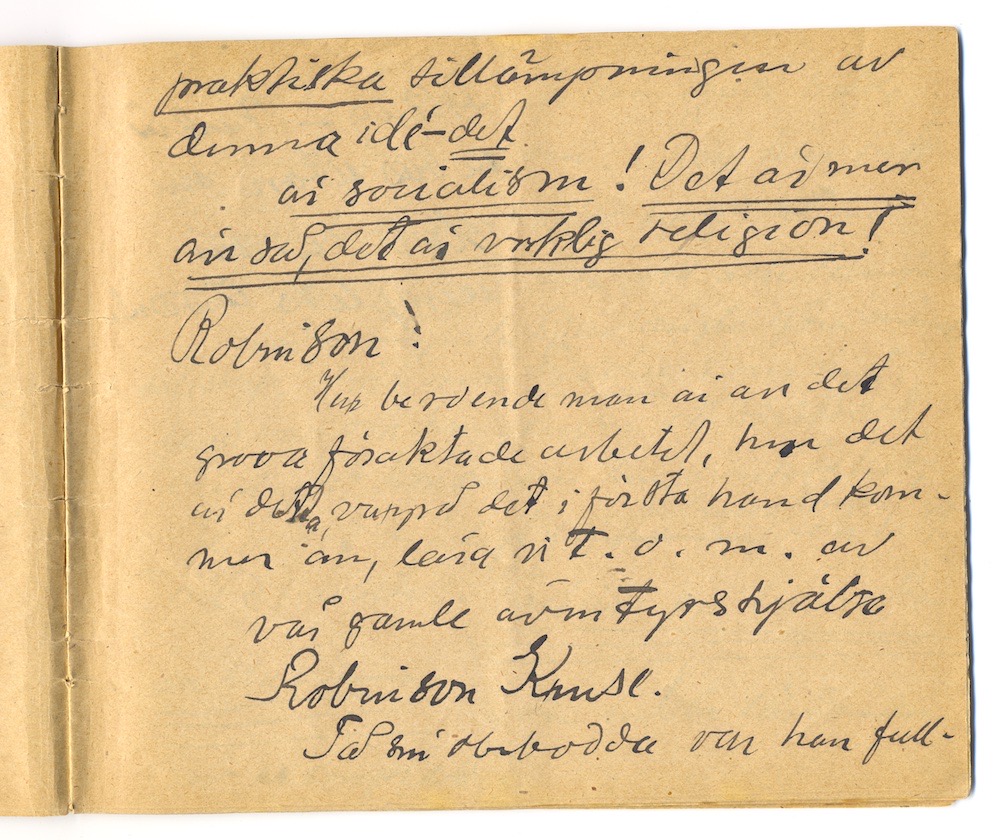 praktiska tillämpningen av
denna idé – det
är socialism! Det är mer
än så, det är verklig religion!
Robinson!
Hur beroende man är av det
grova föraktade arbetet, hur det
är detta, varpå det i första hand kom-
mer an, lära vi t. o. m. av
vår gamle äventyrshjälte
Robinson Kruse.
På sin obebodda var han full-